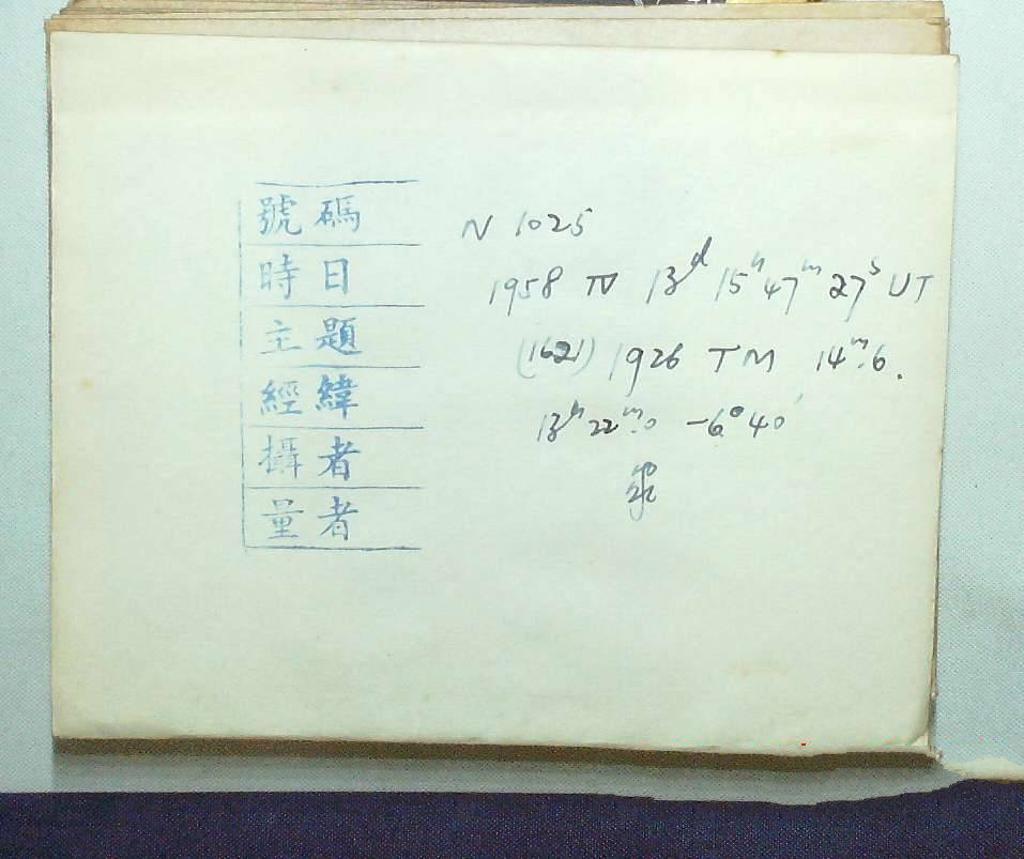 號碼 N 1025
時日 1958 IV 13ᵈ 15ʰ 47ᵐ 27ˢ UT
主題 (1621) 1926 TM 14ᵐ.6.
經緯 13ʰ 22ᵐ.0 -6° 40′
攝者
量者